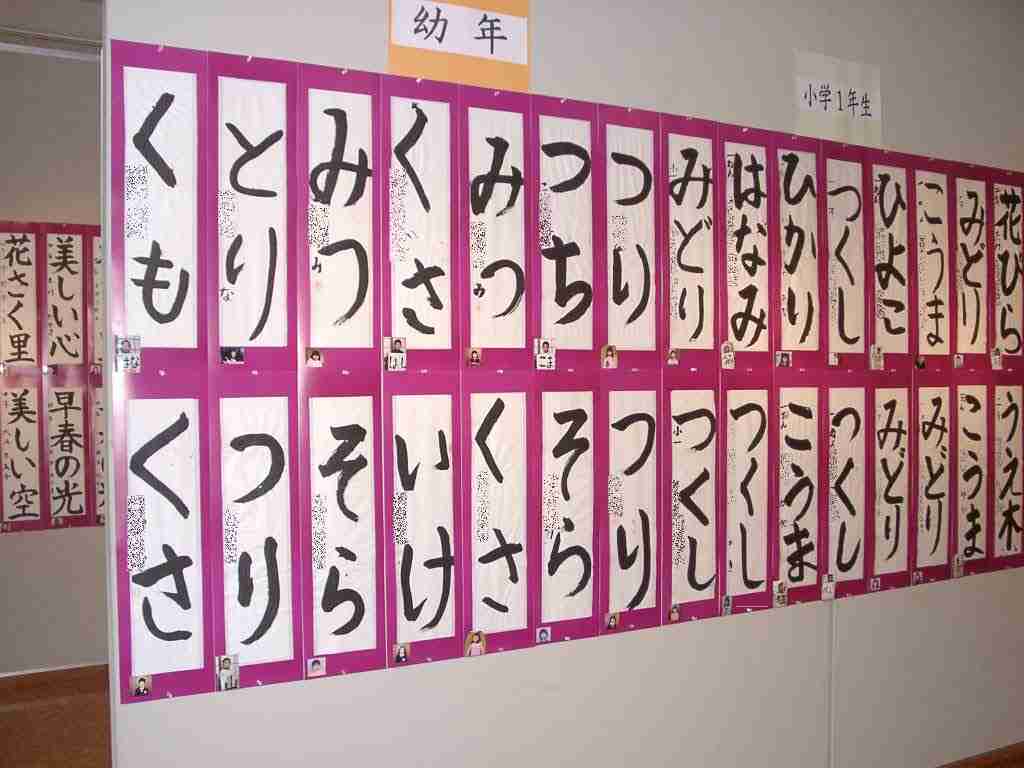 幼年
小学1年生
くも
とり
みつ
くさ
みつ
つち
つり
みどり
はなみ
ひかり
つくし
ひよこ
こうま
みどり
花びら
くさ
つり
そら
いけ
くさ
そら
つり
つくし
つくし
こうま
つくし
みどり
みどり
こうま
うえ木
花さく里
美しい心
美しい空
早春の光